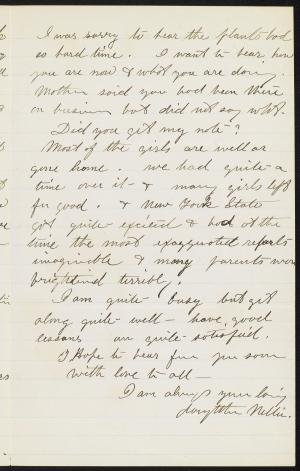 I was sorry to hear the plants had
so hard time. I want to hear how
you are now & what you are doing.
Mother said you had been there
on business but did not say what.
Did you get my note-?
Most of the girls are well or
gone home. we had quite a
time over it - & many girls left
for good. & New York State
got quite excited & had at the
time the most exaggerated reports
imaginable & many parents were
frightened terribly.
I am quite busy but get
along quite well - have good
lessons am quite satisfied.
I Hope to hear from you soon
with love to all -
I am always your loving
daughter Nellie.